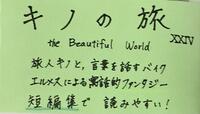 キノの旅
XXIV
the Beautiful World
旅人キノと，言葉を話すバイク
エルメスによる寓話的ファンタジー
短編集で 読みやすい！